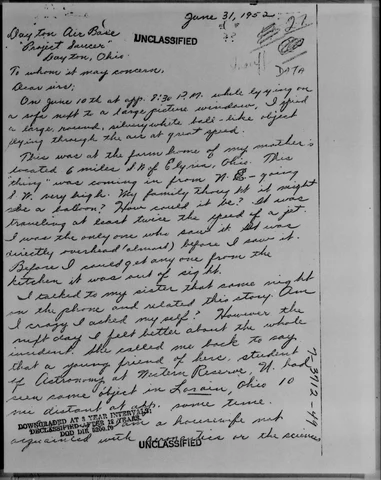 June 31, 1952
Dayton Air Base
UNCLASSIFIED
"Project Saucer"
Dayton, Ohio.
DATA
To whom it may concern,
Dear sirs;
On June 10th at app. 8:30 P.M. while lying on
a sofa next to a large picture window, I spied
a large, round, silvery white ball-like object
flying through the air at great speed.
This was at the farm home of my mother's
located 6 miles S.W. of Elyria, Ohio. This
"thing" was coming in from N. E. - going
S. W. very high. My family thought it might
be a balloon? How could it be? It was
traveling at least twice the speed of a jet.
I was the only one who saw it It was
directly overhead (almost) before I saw it.
Before I could get any one from the
kitchen it was out of sight.
I talked to my sister that same night
on the phone and related this story. Am
I crazy I asked my self? However the
next day I felt better about the whole
incident. She called me back to say
that a young friend of hers, student
of Astronomy at Western Reserve, U. had
seen some object in Lorain, Ohio 10
mi distant at app. same time.
DOWNGRADED AT 3 YEAR INTERVALS;
DECLASSIFIED AFTER 12 YEARS.
DOD DIR 5200.10
am a housewife not
acquainted with or the sciences
UNCLASSIFIED
T-3712-49